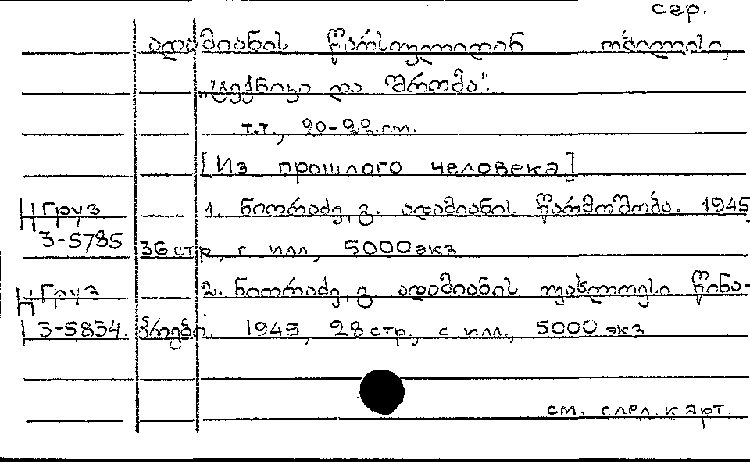 сер.
ადამიანის წარსულიდან თბილისი,
„ტექნიკა და შრომა".
т.т., 20-22 см.
[Из прошлого человека]
Груз 1. ნიორაძე, გ. ადამიანის წარმოშობა. 1945,
3-5785 36 стр., с илл., 5000 экз
Груз 2. ნიორაძე, გ. ადამიანის უახლოესი წინა-
3-5834. პრები. 1945, 28 стр., с илл., 5000 экз
см. след. карт.